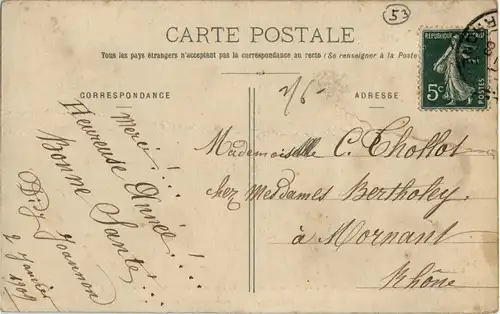 53
CARTE POSTALE
Tous les pays étrangers n'acceptent pas la correspondance au recto (Se renseigner à la Poste
CORRESPONDANCE
ADRESSE
REPUBLIQUE
5c
POSTES
Merci!...
Heureuse Année!...
Bonne Santé!...
Joannon
2 Janvier
1909
Mademoiselle C. Thollot
chez Mesdames Bertholey
à Mornant
Rhône